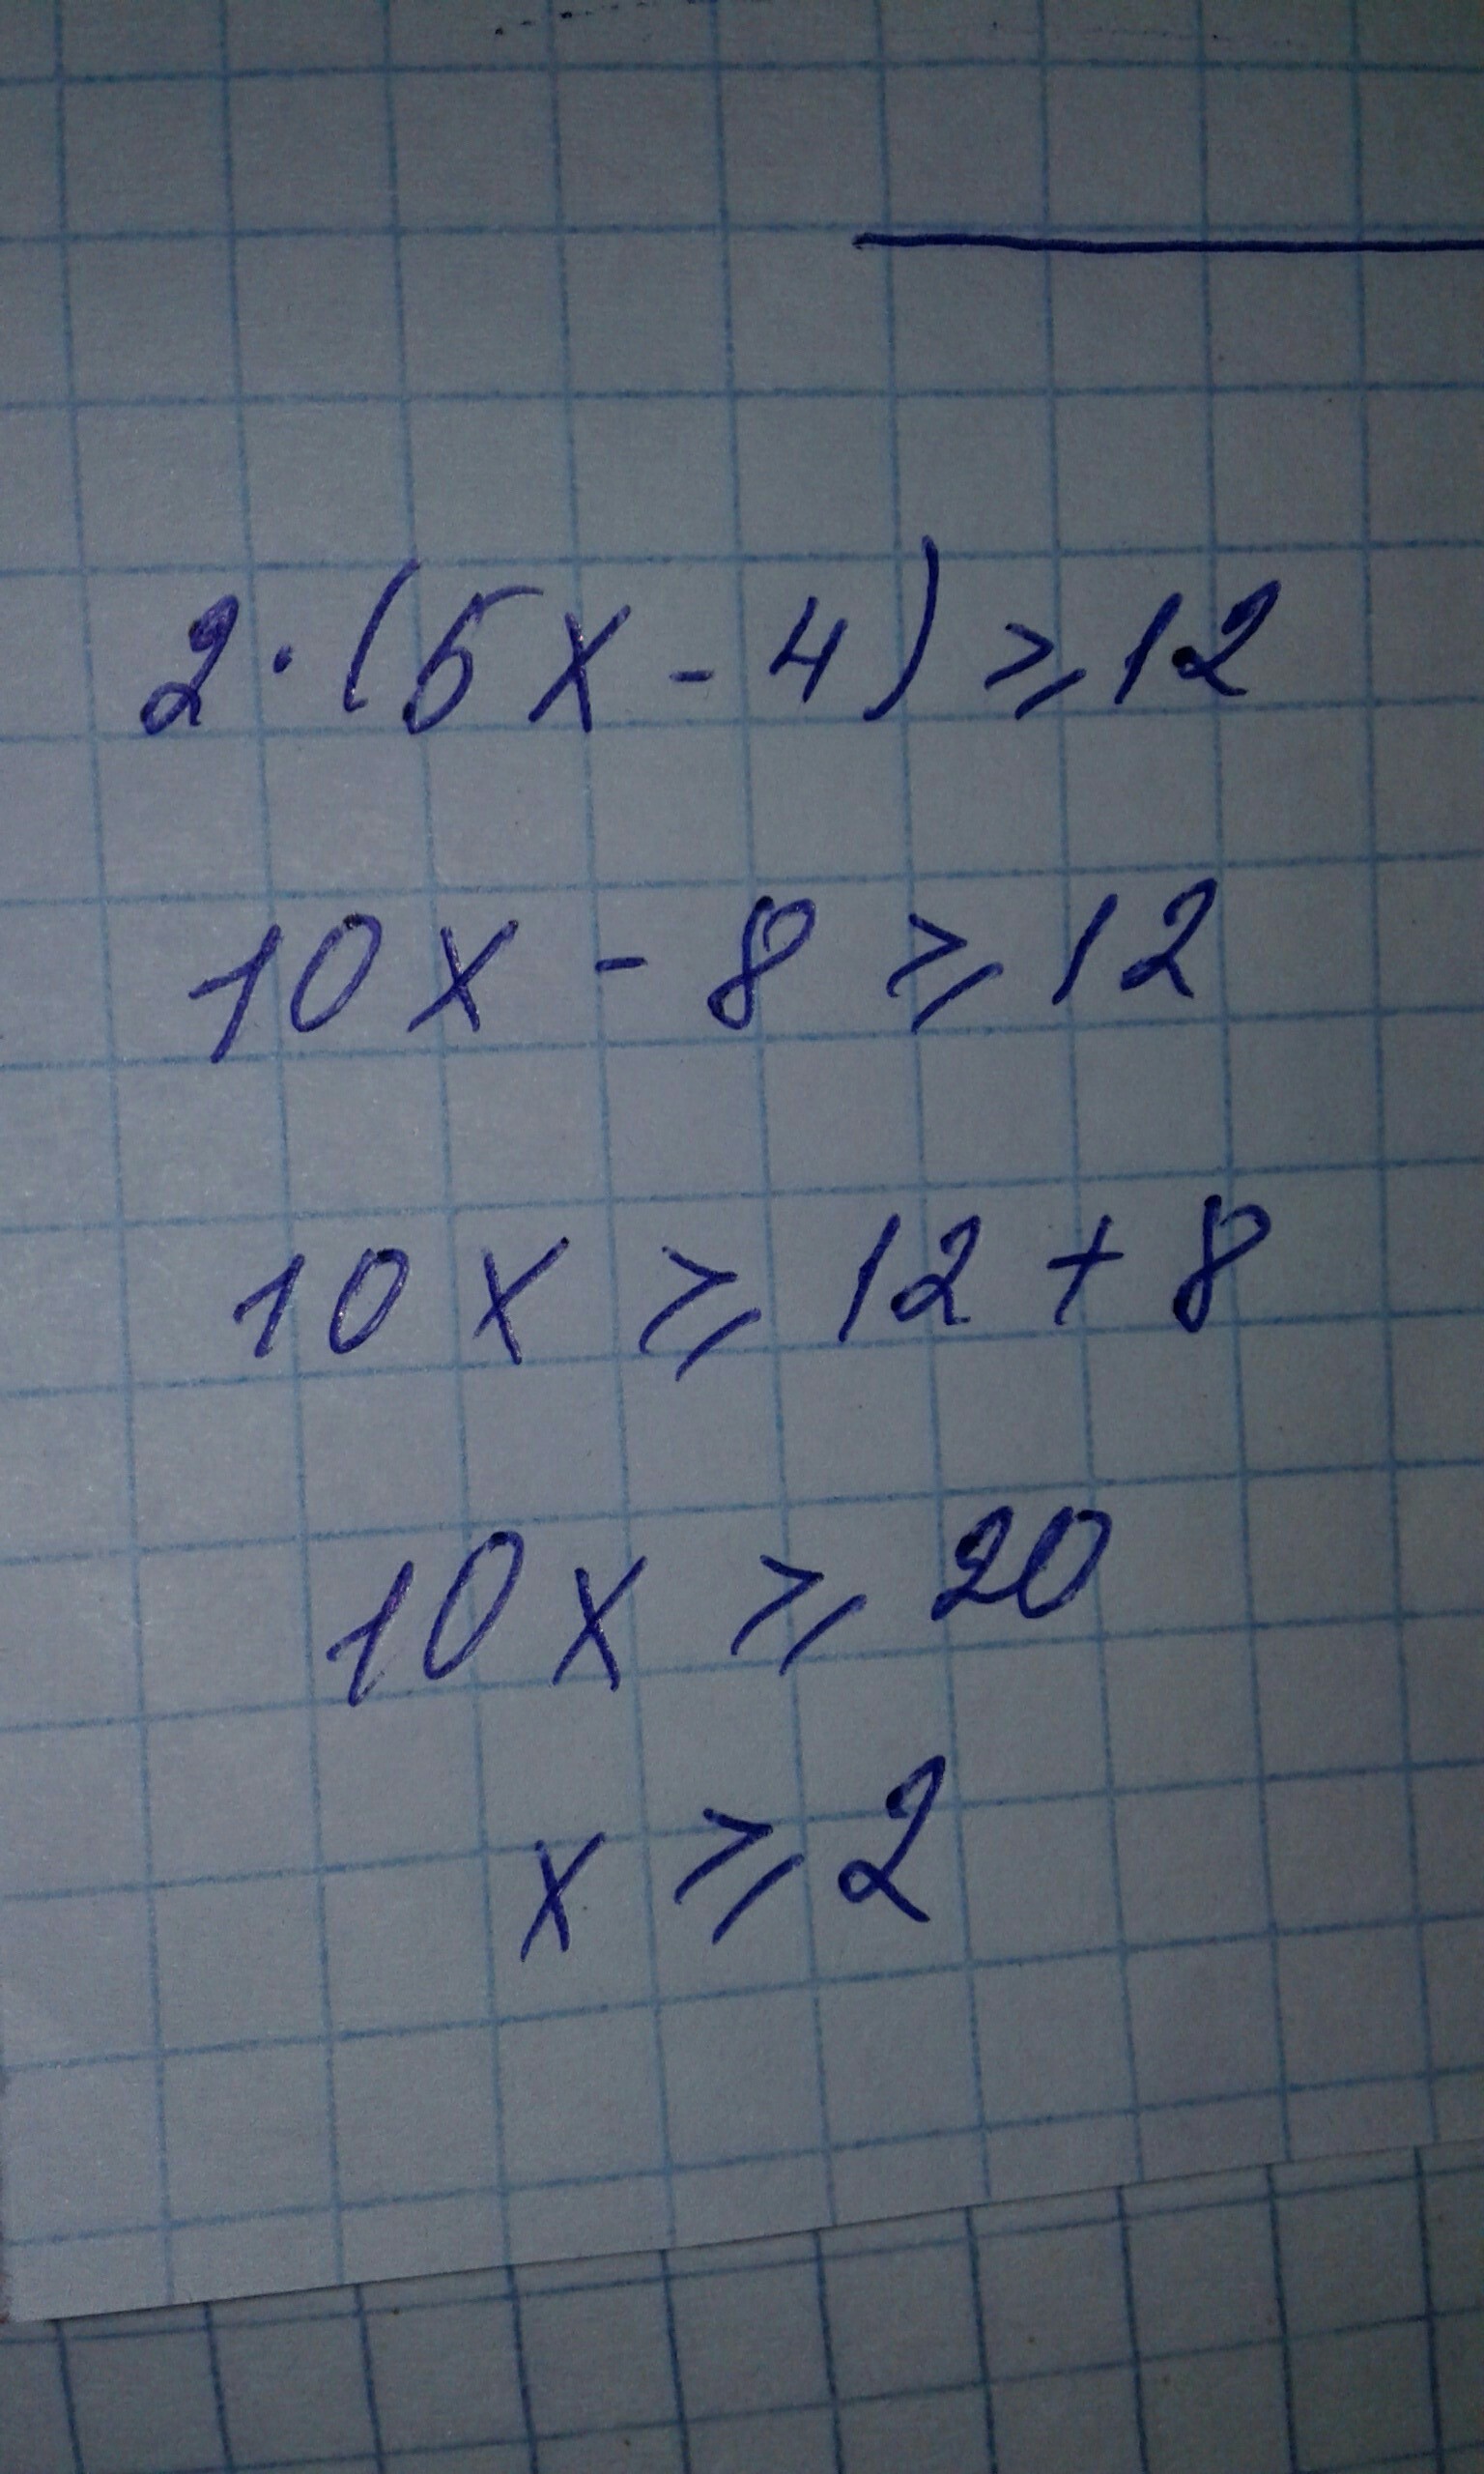 2·(5x-4)⩾12
10x-8⩾12
10x⩾12+8
10x⩾20
x⩾2